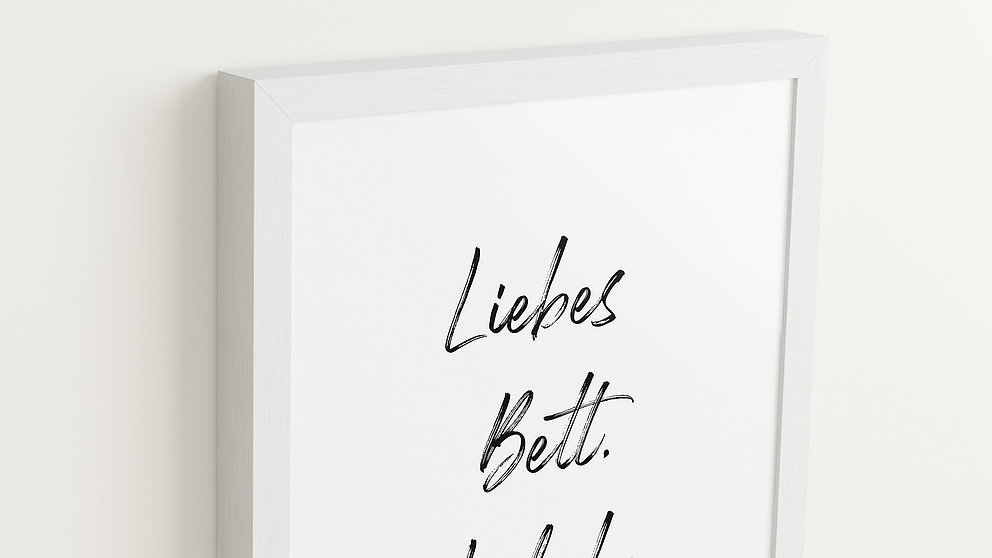 Liebes
Bett.